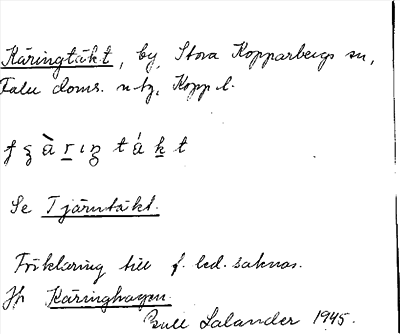 Käringtäkt, by, Stora Kopparbergs sn,
Falu doms. ntg, Kopp l.
Se Tjärntäkt.
Förklaring till f. led. saknas.
Jfr Käringhagen.
Lalander 1945.